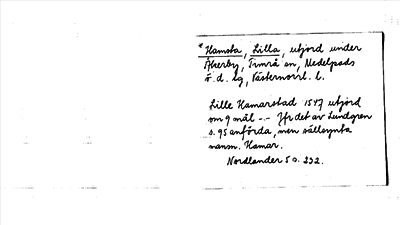 * Hamsta, Lilla, utjord under
Åkerby, Timrå sn, Medelpads
v. d. lg, Västernorrl. l.
Lille Hamarstad 1547 utjord
om 9 mål -.- Jfr det av Lundgren
s. 95 anförda, men sällsynta
mansn. Hamar.
Nordlander 5 s. 232.